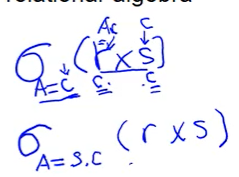 relational algebra
AC C
σ A=C (r × s)
C. C
σ A=S.C (r × s)